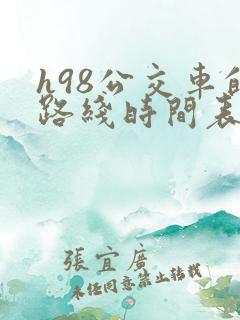 h98公交車
路綫時間表
張宜廣
未经同意禁止转载